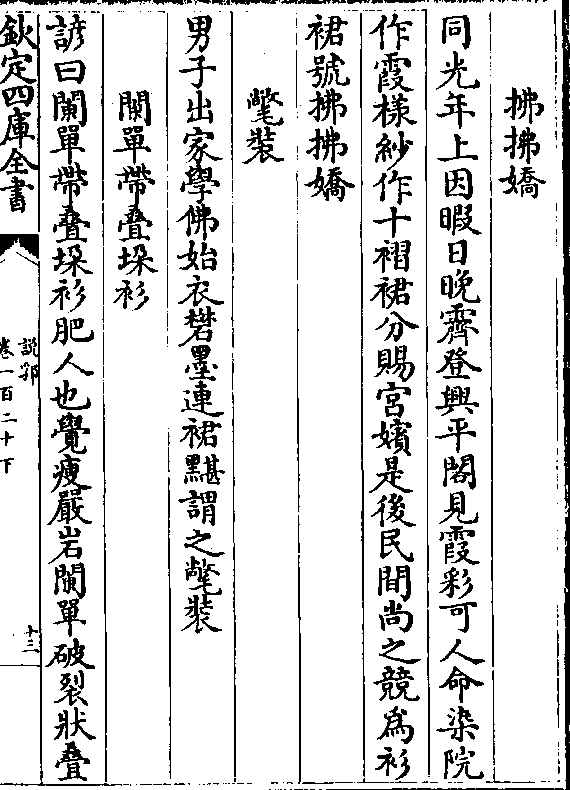 拂拂嬌
同光年上因暇日晚霽登興平閣見霞彩可人命染院
作霞様紗作十褶裙分賜宮嬪是後民間尚之競爲衫
裙號拂拂嬌
氅装
男子出家學佛始衣礬墨連裙黮謂之氅装
闌單帶疊垜衫
諺曰闌單帶疊垜衫肥人也覺瘦嚴岩闌單破裂狀疊
欽定四庫全書
説郛
卷一百二十下
十三